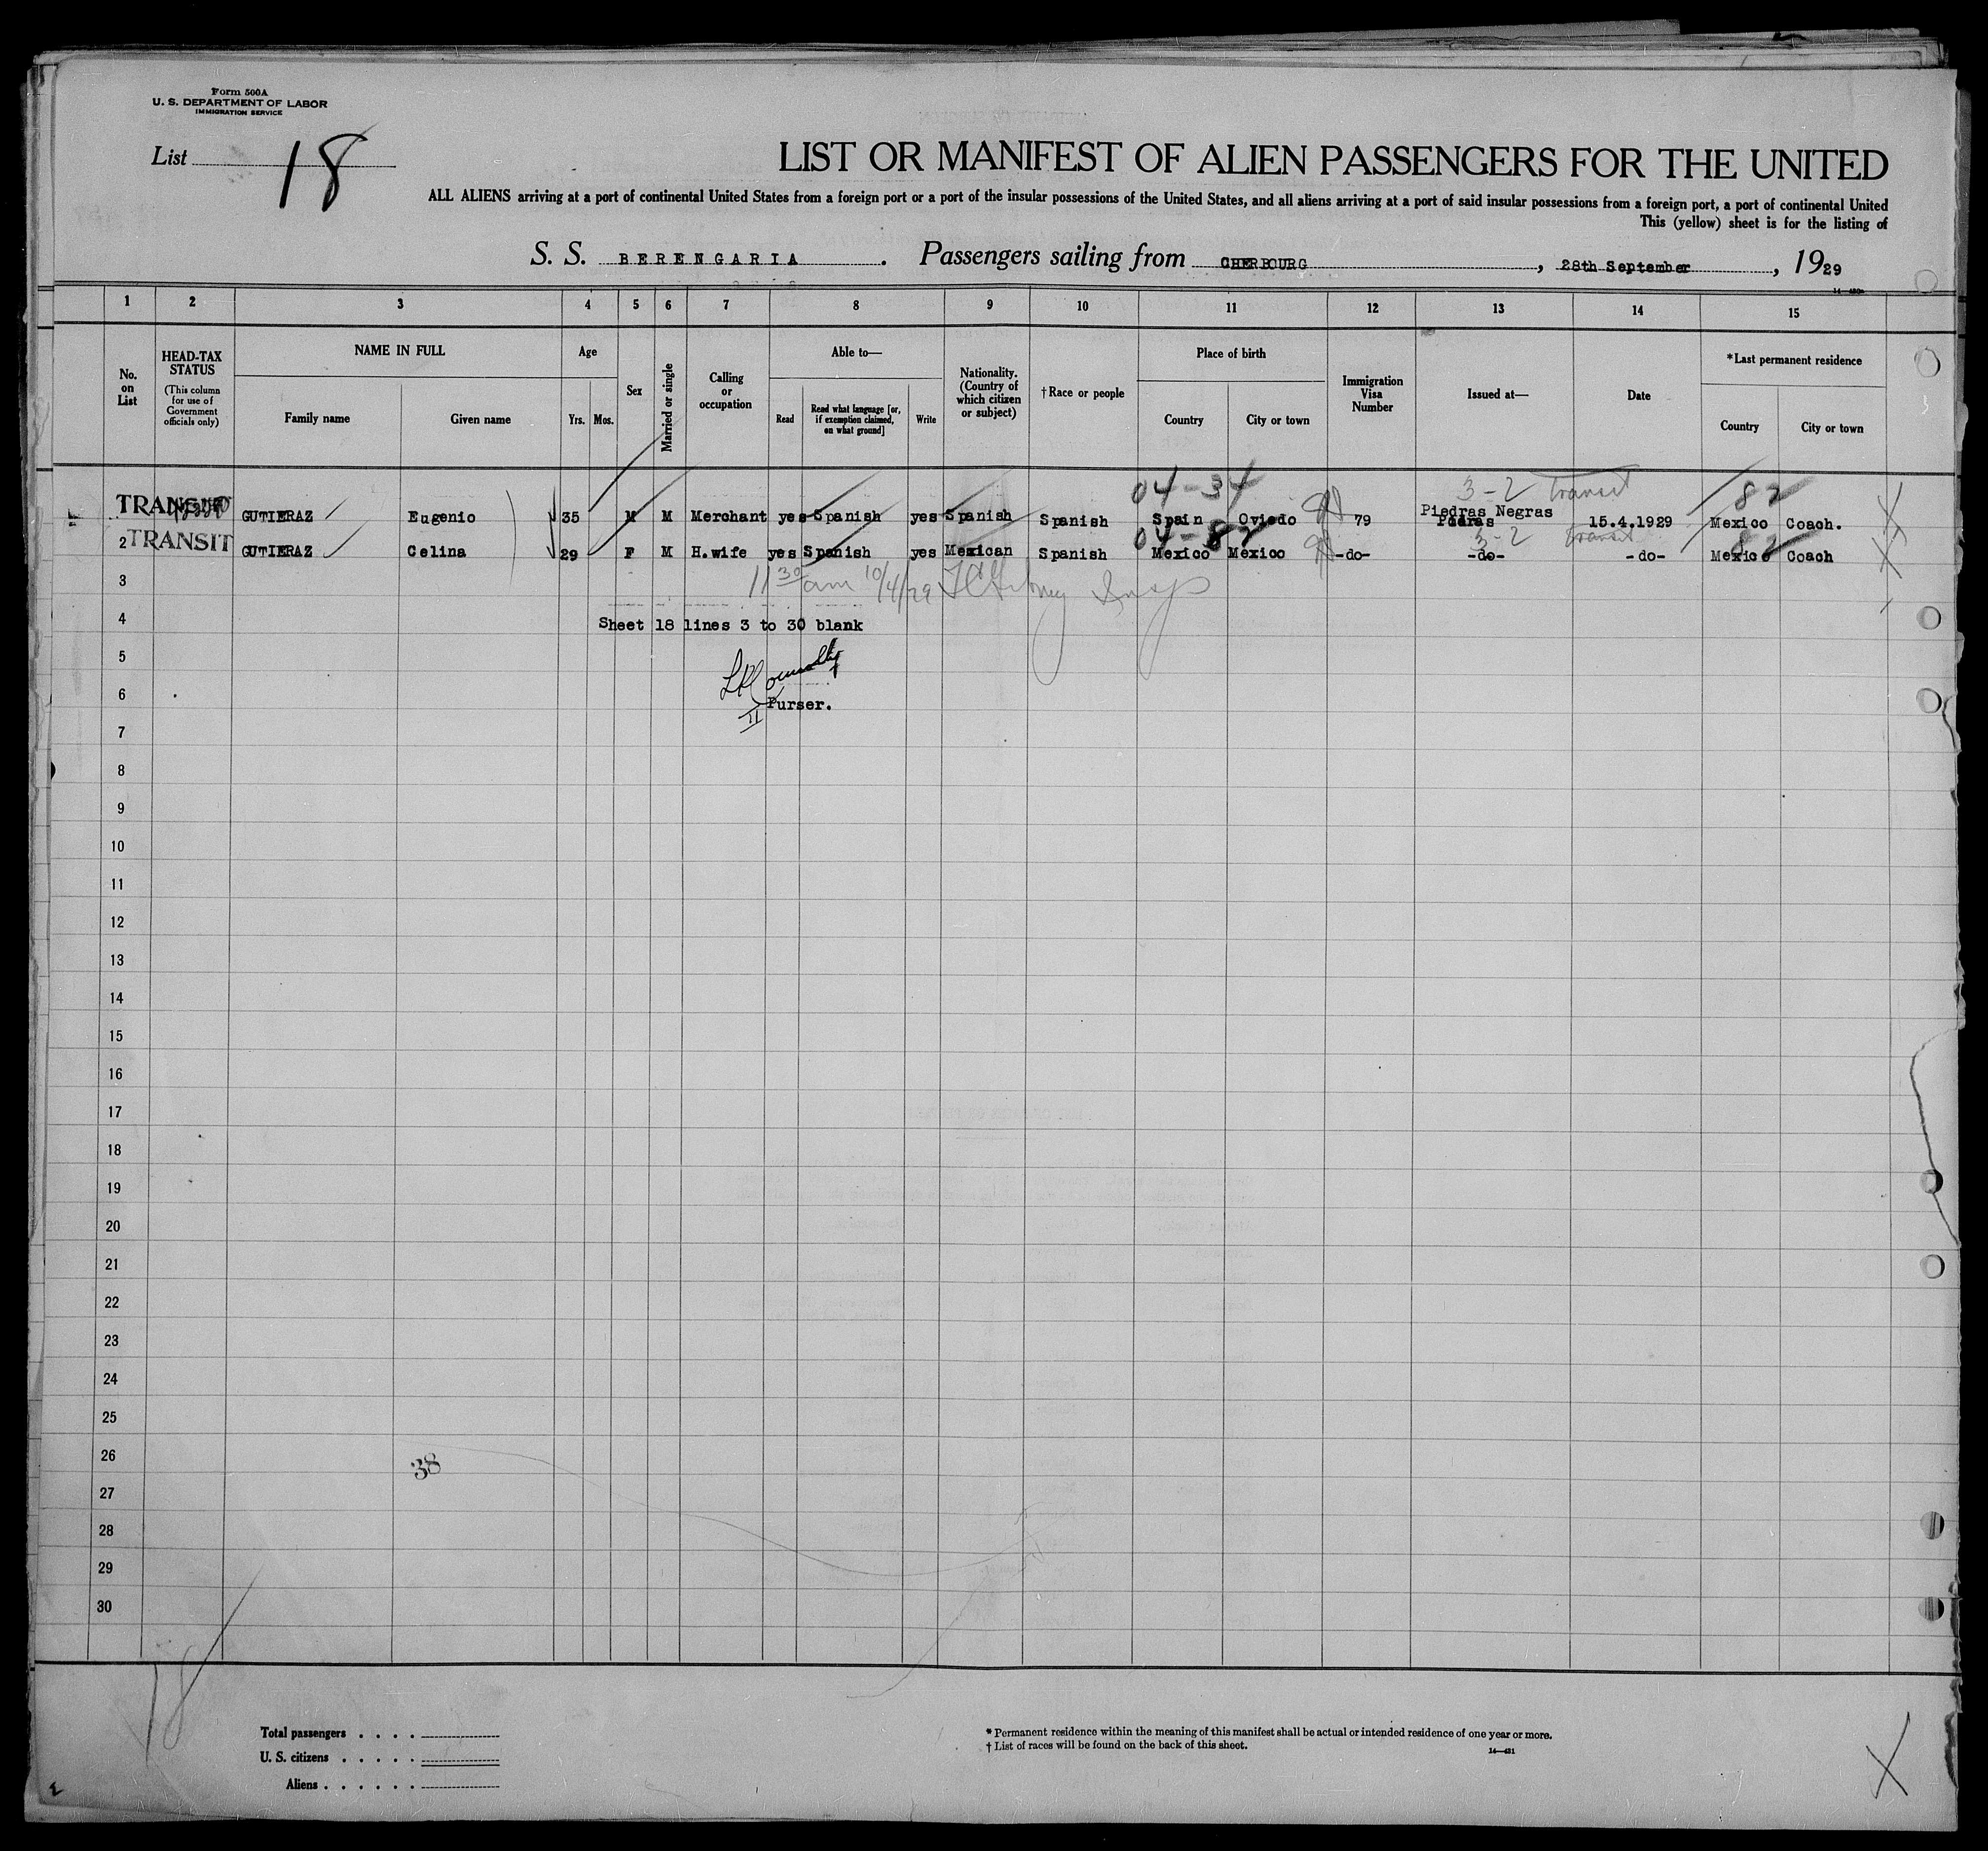 Form 500A
U. S. DEPARTMENT OF LABOR
IMMIGRATION SERVICE
List 18
LIST OR MANIFEST OF ALIEN PASSENGERS FOR THE UNITED
ALL ALIENS arriving at a port of continental United States from a foreign port or a port of the insular possessions of the United States, and all aliens arriving at a port of said insular possessions from a foreign port, a port of continental United
This (yellow) sheet is for the listing of
S. S. BERENGARIA. Passengers sailing from CHERBOURG, 28th September, 1929
1 2 3 4 5 6 7 8 9 10 11 12 13 14 15
No. on List
HEAD-TAX STATUS (This column for use of Government officials only)
NAME IN FULL
Family name Given name
Age
Yrs. Mos.
Sex
Married or single
Calling or occupation
Able to—
Read Read what language [or, if exemption claimed, on what ground] Write
Nationality. (Country of which citizen or subject)
†Race or people
Place of birth
Country City or town
Immigration Visa Number
Issued at—
Date
*Last permanent residence
Country City or town
04-34 3-2 Transit 82
TRANSIT GUTIERAZ Eugenio 35 M M Merchant yes Spanish yes Spanish Spanish Spain Oviedo 79 Piedras Negras 15.4.1929 Mexico Coach.
04-82 3-2 Transit 82
2 TRANSIT GUTIERAZ Celina 29 F M H.wife yes Spanish yes Mexican Spanish Mexico Mexico -do- -do- -do- Mexico Coach
3 11 30 am 10/4/29 Insp
4 Sheet 18 lines 3 to 30 blank
5
6 Purser.
II
7
8
9
10
11
12
13
14
15
16
17
18
19
20
21
22
23
24
25
26 38
27
28
29
30
18
Total passengers . . . .
U. S. citizens . . . . .
Aliens . . . . . .
* Permanent residence within the meaning of this manifest shall be actual or intended residence of one year or more.
† List of races will be found on the back of this sheet.
14—431
X